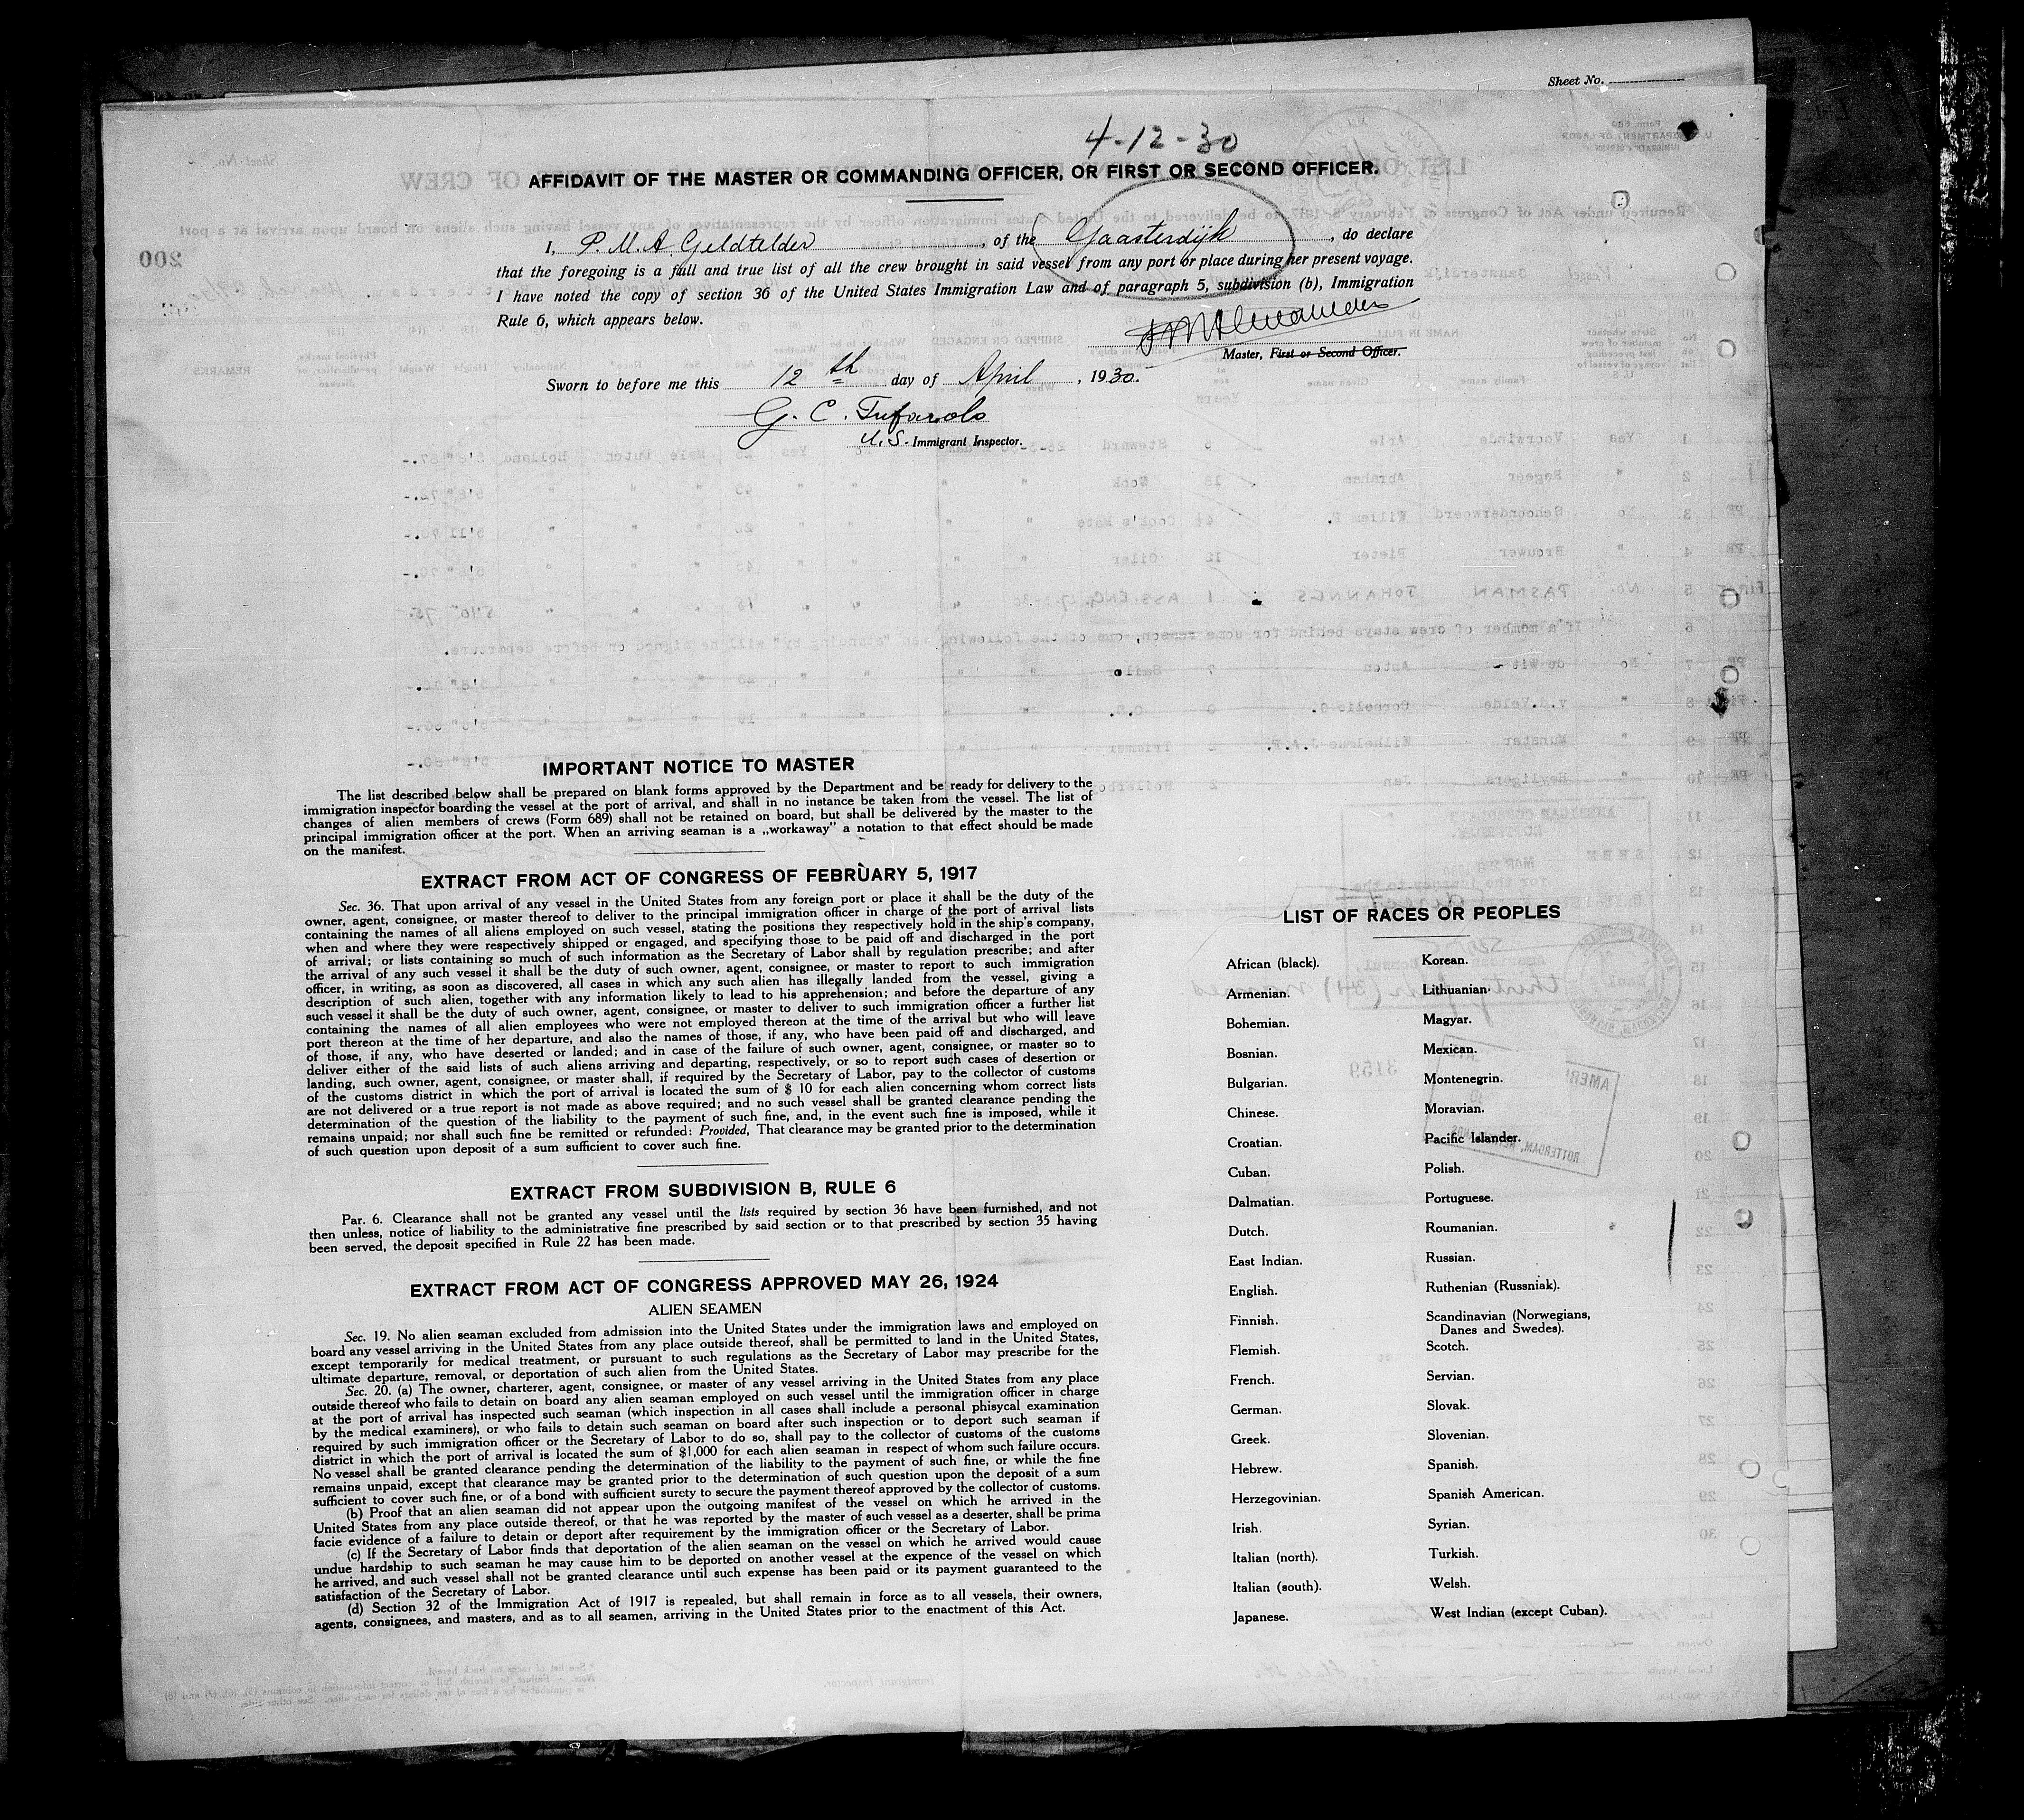 Sheet No.
4-12-30
AFFIDAVIT OF THE MASTER OR COMMANDING OFFICER, OR FIRST OR SECOND OFFICER.
I, P. M. A. Geldtelder, of the Gaasterdijk, do declare
that the foregoing is a full and true list of all the crew brought in said vessel from any port or place during her present voyage.
I have noted the copy of section 36 of the United States Immigration Law and of paragraph 5, subdivision (b), Immigration
Rule 6, which appears below.
Master, First or Second Officer.
Sworn to before me this 12th day of April, 1930.
G. C. Tufarolo
U. S. Immigrant Inspector.
200
IMPORTANT NOTICE TO MASTER
The list described below shall be prepared on blank forms approved by the Department and be ready for delivery to the
immigration inspector boarding the vessel at the port of arrival, and shall in no instance be taken from the vessel. The list of
changes of alien members of crews (Form 689) shall not be retained on board, but shall be delivered by the master to the
principal immigration officer at the port. When an arriving seaman is a „workaway” a notation to that effect should be made
on the manifest.
EXTRACT FROM ACT OF CONGRESS OF FEBRUARY 5, 1917
Sec. 36. That upon arrival of any vessel in the United States from any foreign port or place it shall be the duty of the
owner, agent, consignee, or master thereof to deliver to the principal immigration officer in charge of the port of arrival lists
containing the names of all aliens employed on such vessel, stating the positions they respectively hold in the ship's company,
when and where they were respectively shipped or engaged, and specifying those to be paid off and discharged in the port
of arrival; or lists containing so much of such information as the Secretary of Labor shall by regulation prescribe; and after
the arrival of any such vessel it shall be the duty of such owner, agent, consignee, or master to report to such immigration
officer, in writing, as soon as discovered, all cases in which any such alien has illegally landed from the vessel, giving a
description of such alien, together with any information likely to lead to his apprehension; and before the departure of any
such vessel it shall be the duty of such owner, agent, consignee, or master to deliver to such immigration officer a further list
containing the names of all alien employees who were not employed thereon at the time of the arrival but who will leave
port thereon at the time of her departure, and also the names of those, if any, who have been paid off and discharged, and
of those, if any, who have deserted or landed; and in case of the failure of such owner, agent, consignee, or master so to
deliver either of the said lists of such aliens arriving and departing, respectively, or so to report such cases of desertion or
landing, such owner, agent, consignee, or master shall, if required by the Secretary of Labor, pay to the collector of customs
of the customs district in which the port of arrival is located the sum of $ 10 for each alien concerning whom correct lists
are not delivered or a true report is not made as above required; and no such vessel shall be granted clearance pending the
determination of the question of the liability to the payment of such fine, and, in the event such fine is imposed, while it
remains unpaid; nor shall such fine be remitted or refunded: Provided, That clearance may be granted prior to the determination
of such question upon deposit of a sum sufficient to cover such fine.
EXTRACT FROM SUBDIVISION B, RULE 6
Par. 6. Clearance shall not be granted any vessel until the lists required by section 36 have been furnished, and not
then unless, notice of liability to the administrative fine prescribed by said section or to that prescribed by section 35 having
been served, the deposit specified in Rule 22 has been made.
EXTRACT FROM ACT OF CONGRESS APPROVED MAY 26, 1924
ALIEN SEAMEN
Sec. 19. No alien seaman excluded from admission into the United States under the immigration laws and employed on
board any vessel arriving in the United States from any place outside thereof, shall be permitted to land in the United States,
except temporarily for medical treatment, or pursuant to such regulations as the Secretary of Labor may prescribe for the
ultimate departure, removal, or deportation of such alien from the United States.
Sec. 20. (a) The owner, charterer, agent, consignee, or master of any vessel arriving in the United States from any place
outside thereof who fails to detain on board any alien seaman employed on such vessel until the immigration officer in charge
at the port of arrival has inspected such seaman (which inspection in all cases shall include a personal phisycal examination
by the medical examiners), or who fails to detain such seaman on board after such inspection or to deport such seaman if
required by such immigration officer or the Secretary of Labor to do so, shall pay to the collector of customs of the customs
district in which the port of arrival is located the sum of $1,000 for each alien seaman in respect of whom such failure occurs.
No vessel shall be granted clearance pending the determination of the liability to the payment of such fine, or while the fine
remains unpaid, except that clearance may be granted prior to the determination of such question upon the deposit of a sum
sufficient to cover such fine, or of a bond with sufficient surety to secure the payment thereof approved by the collector of customs.
(b) Proof that an alien seaman did not appear upon the outgoing manifest of the vessel on which he arrived in the
United States from any place outside thereof, or that he was reported by the master of such vessel as a deserter, shall be prima
facie evidence of a failure to detain or deport after requirement by the immigration officer or the Secretary of Labor.
(c) If the Secretary of Labor finds that deportation of the alien seaman on the vessel on which he arrived would cause
undue hardship to such seaman he may cause him to be deported on another vessel at the expence of the vessel on which
he arrived, and such vessel shall not be granted clearance until such expense has been paid or its payment guaranteed to the
satisfaction of the Secretary of Labor.
(d) Section 32 of the Immigration Act of 1917 is repealed, but shall remain in force as to all vessels, their owners,
agents, consignees, and masters, and as to all seamen, arriving in the United States prior to the enactment of this Act.
LIST OF RACES OR PEOPLES
African (black).
Armenian.
Bohemian.
Bosnian.
Bulgarian.
Chinese.
Croatian.
Cuban.
Dalmatian.
Dutch.
East Indian.
English.
Finnish.
Flemish.
French.
German.
Greek.
Hebrew.
Herzegovinian.
Irish.
Italian (north).
Italian (south).
Japanese.
Korean.
Lithuanian.
Magyar.
Mexican.
Montenegrin.
Moravian.
Pacific Islander.
Polish.
Portuguese.
Roumanian.
Russian.
Ruthenian (Russniak).
Scandinavian (Norwegians,
Danes and Swedes).
Scotch.
Servian.
Slovak.
Slovenian.
Spanish.
Spanish American.
Syrian.
Turkish.
Welsh.
West Indian (except Cuban).